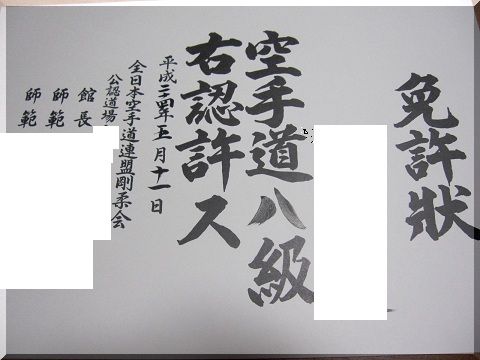 免許狀
空手道八級
右認許ス
平成二四年五月十一日
全日本空手道連盟剛柔会
公認道場
館長
師範
師範